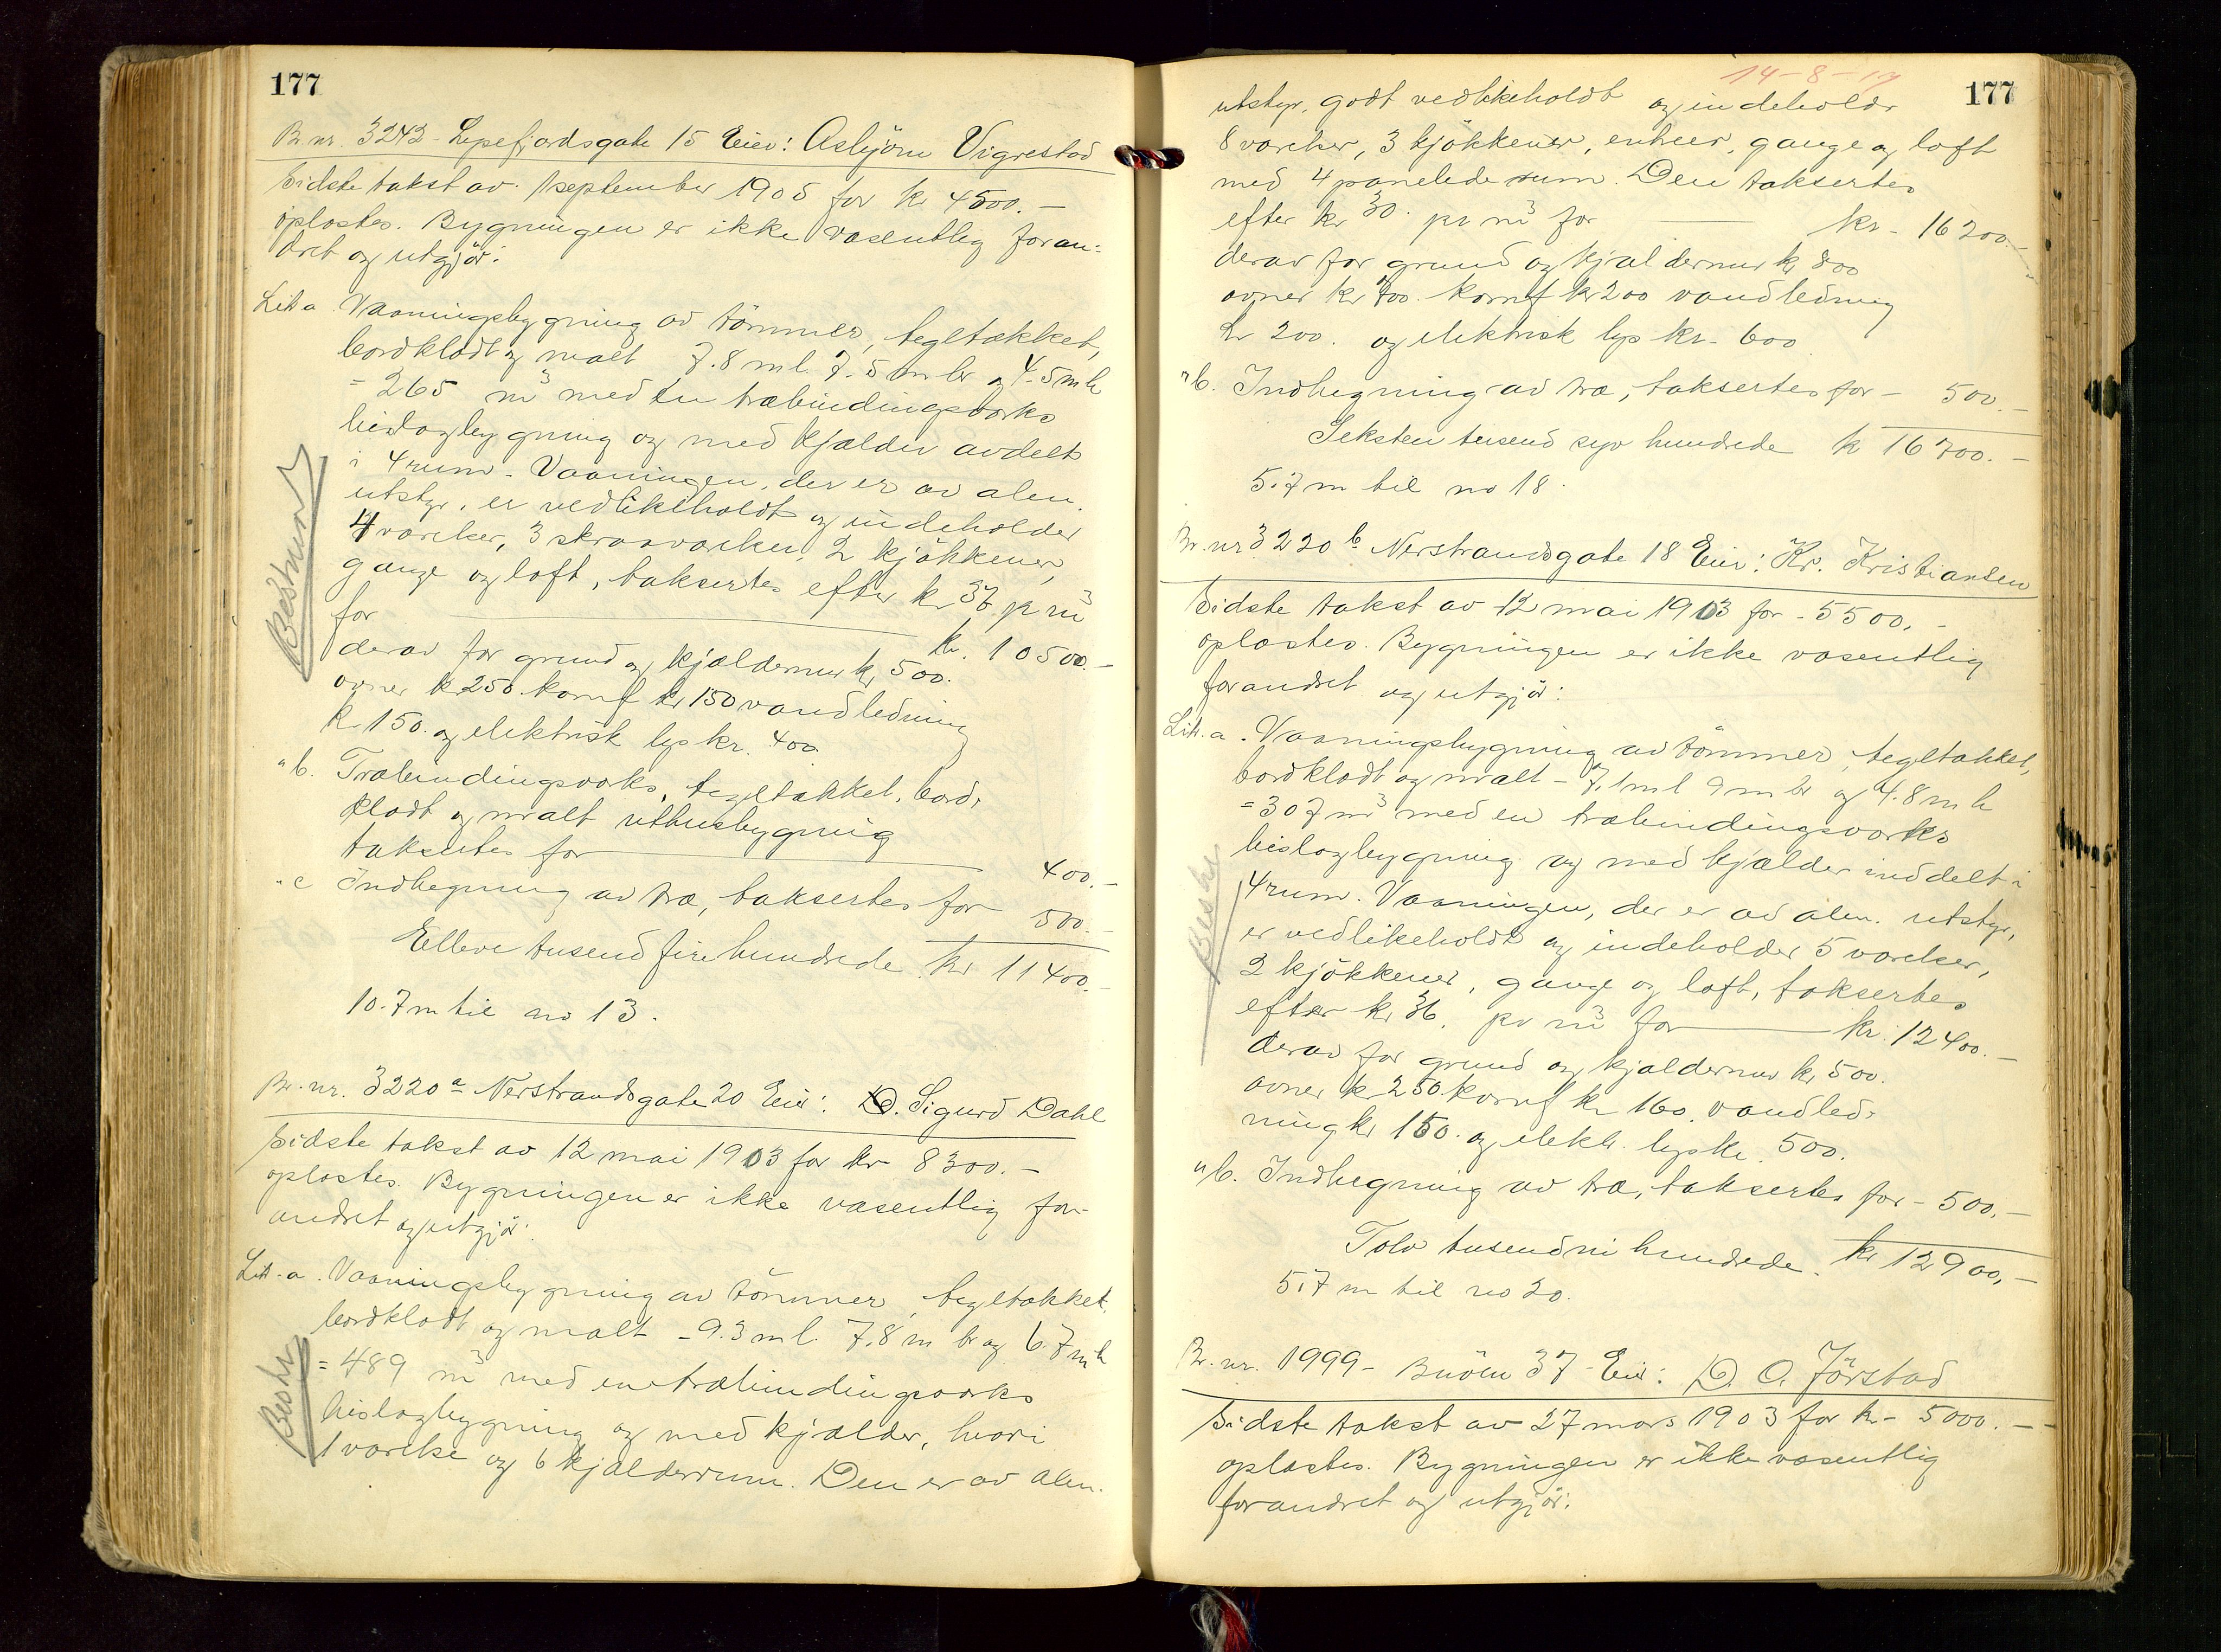 177
Br. nr. 3243 - Lysefjordsgate 15 Eier: Asbjörn Vigrestad
Sidste takst av 1 september 1905 for kr 4500.-
oplæstes. Bygningen er ikke væsentlig foran-
dret og utgjör:
Lit a Vaaningsbygning av tömmer, tegltækket,
bordklædt og malt 7.8 m l. 7.5 m br og 4.5 m h
= 265 m³ med en træbindingsverks
bislagbygning og med kjælder avdelt
i 4 rum. Vaaningen, der er av alm.
utstyr, er vedlikeholdt og indeholder
4 værelser, 3 skraaværelser, 2 kjökkener,
gange og loft, taksertes efter kr 36. pr m³
for kr. 10500.-
derav for grund og kjældermur kr 500.
ovner kr 250. komf kr 150 vandledning
kr 150. og elektrisk lys kr. 400.
" b. Træbindingsverks, tegltækket, bord-
klædt og malt uthusbygning
taksertes for 400.-
" c Indhegning av træ, taksertes for 500.-
Elleve tusend fire hundrede kr 11400.-
10.7 m til no 13.
Bestund
Br. nr. 3220 a Nerstrandsgate 20 Eier: D. Sigurd Dahl
Sidste takst av 12 mai 1903 for kr 8300.-
oplæstes. Bygningen er ikke væsentlig for-
andret og utgjör:
Lit. a. Vaaningsbygning av tömmer, tegltækket,
bordklædt og malt - 9.3 m l. 7.8 m br og 6.7 m h
= 489 m³ med en træbindingsverks
bislagbygning og med kjælder, hvori
1 værelse og 6 kjælderrum. Den er av alm.
14-8-17
177
utstyr, godt vedlikeholdt og indeholder
8 værelser, 3 kjökkener, entreer, gange og loft
med 4 panelede rum. Den taksertes
efter kr 30. pr m³ for kr - 16200.-
derav for grund og kjældermur kr 800
ovner kr 400. komf kr 200 vandledning
kr 200. og elektrisk lys kr. 600
" b. Indhegning av træ, taksertes for - 500.-
Seksten tusend syv hundrede kr 16700.-
5.7 m til no 18.
Br. nr 3220 b Nerstrandsgate 18 Eier: Kr. Kristiansen
Sidste takst av 12 mai 1903 for - 5500.-
oplæstes. Bygningen er ikke væsentlig
forandret og utgjör:
Lit. a. Vaaningsbygning av tömmer, tegltækket,
bordklædt og malt - 7.1 m l 9 m br og 4.8 m h
= 307 m³ med en træbindingsverks
bislagbygning og med kjælder inddelt i
4 rum. Vaaningen, der er av alm. utstyr,
er vedlikeholdt og indeholder 5 værelser,
2 kjökkener, gange og loft, taksertes
efter kr 36. pr m³ for kr. 12400.-
derav for grund og kjældermur kr 500.
ovner kr 250. komf kr 160. vandled-
ning kr 150. og elektr. lys kr. 500.
" b. Indhegning av træ, taksertes for - 500.-
Tolv tusend ni hundrede. kr 12900,-
5.7 m til no 20.
Br. nr. 1999 - Buöen 37 - Eier: D. O. Jörstad
Sidste takst av 27 mars 1903 for kr - 5000.-
oplæstes. Bygningen er ikke væsentlig
forandret og utgjör: